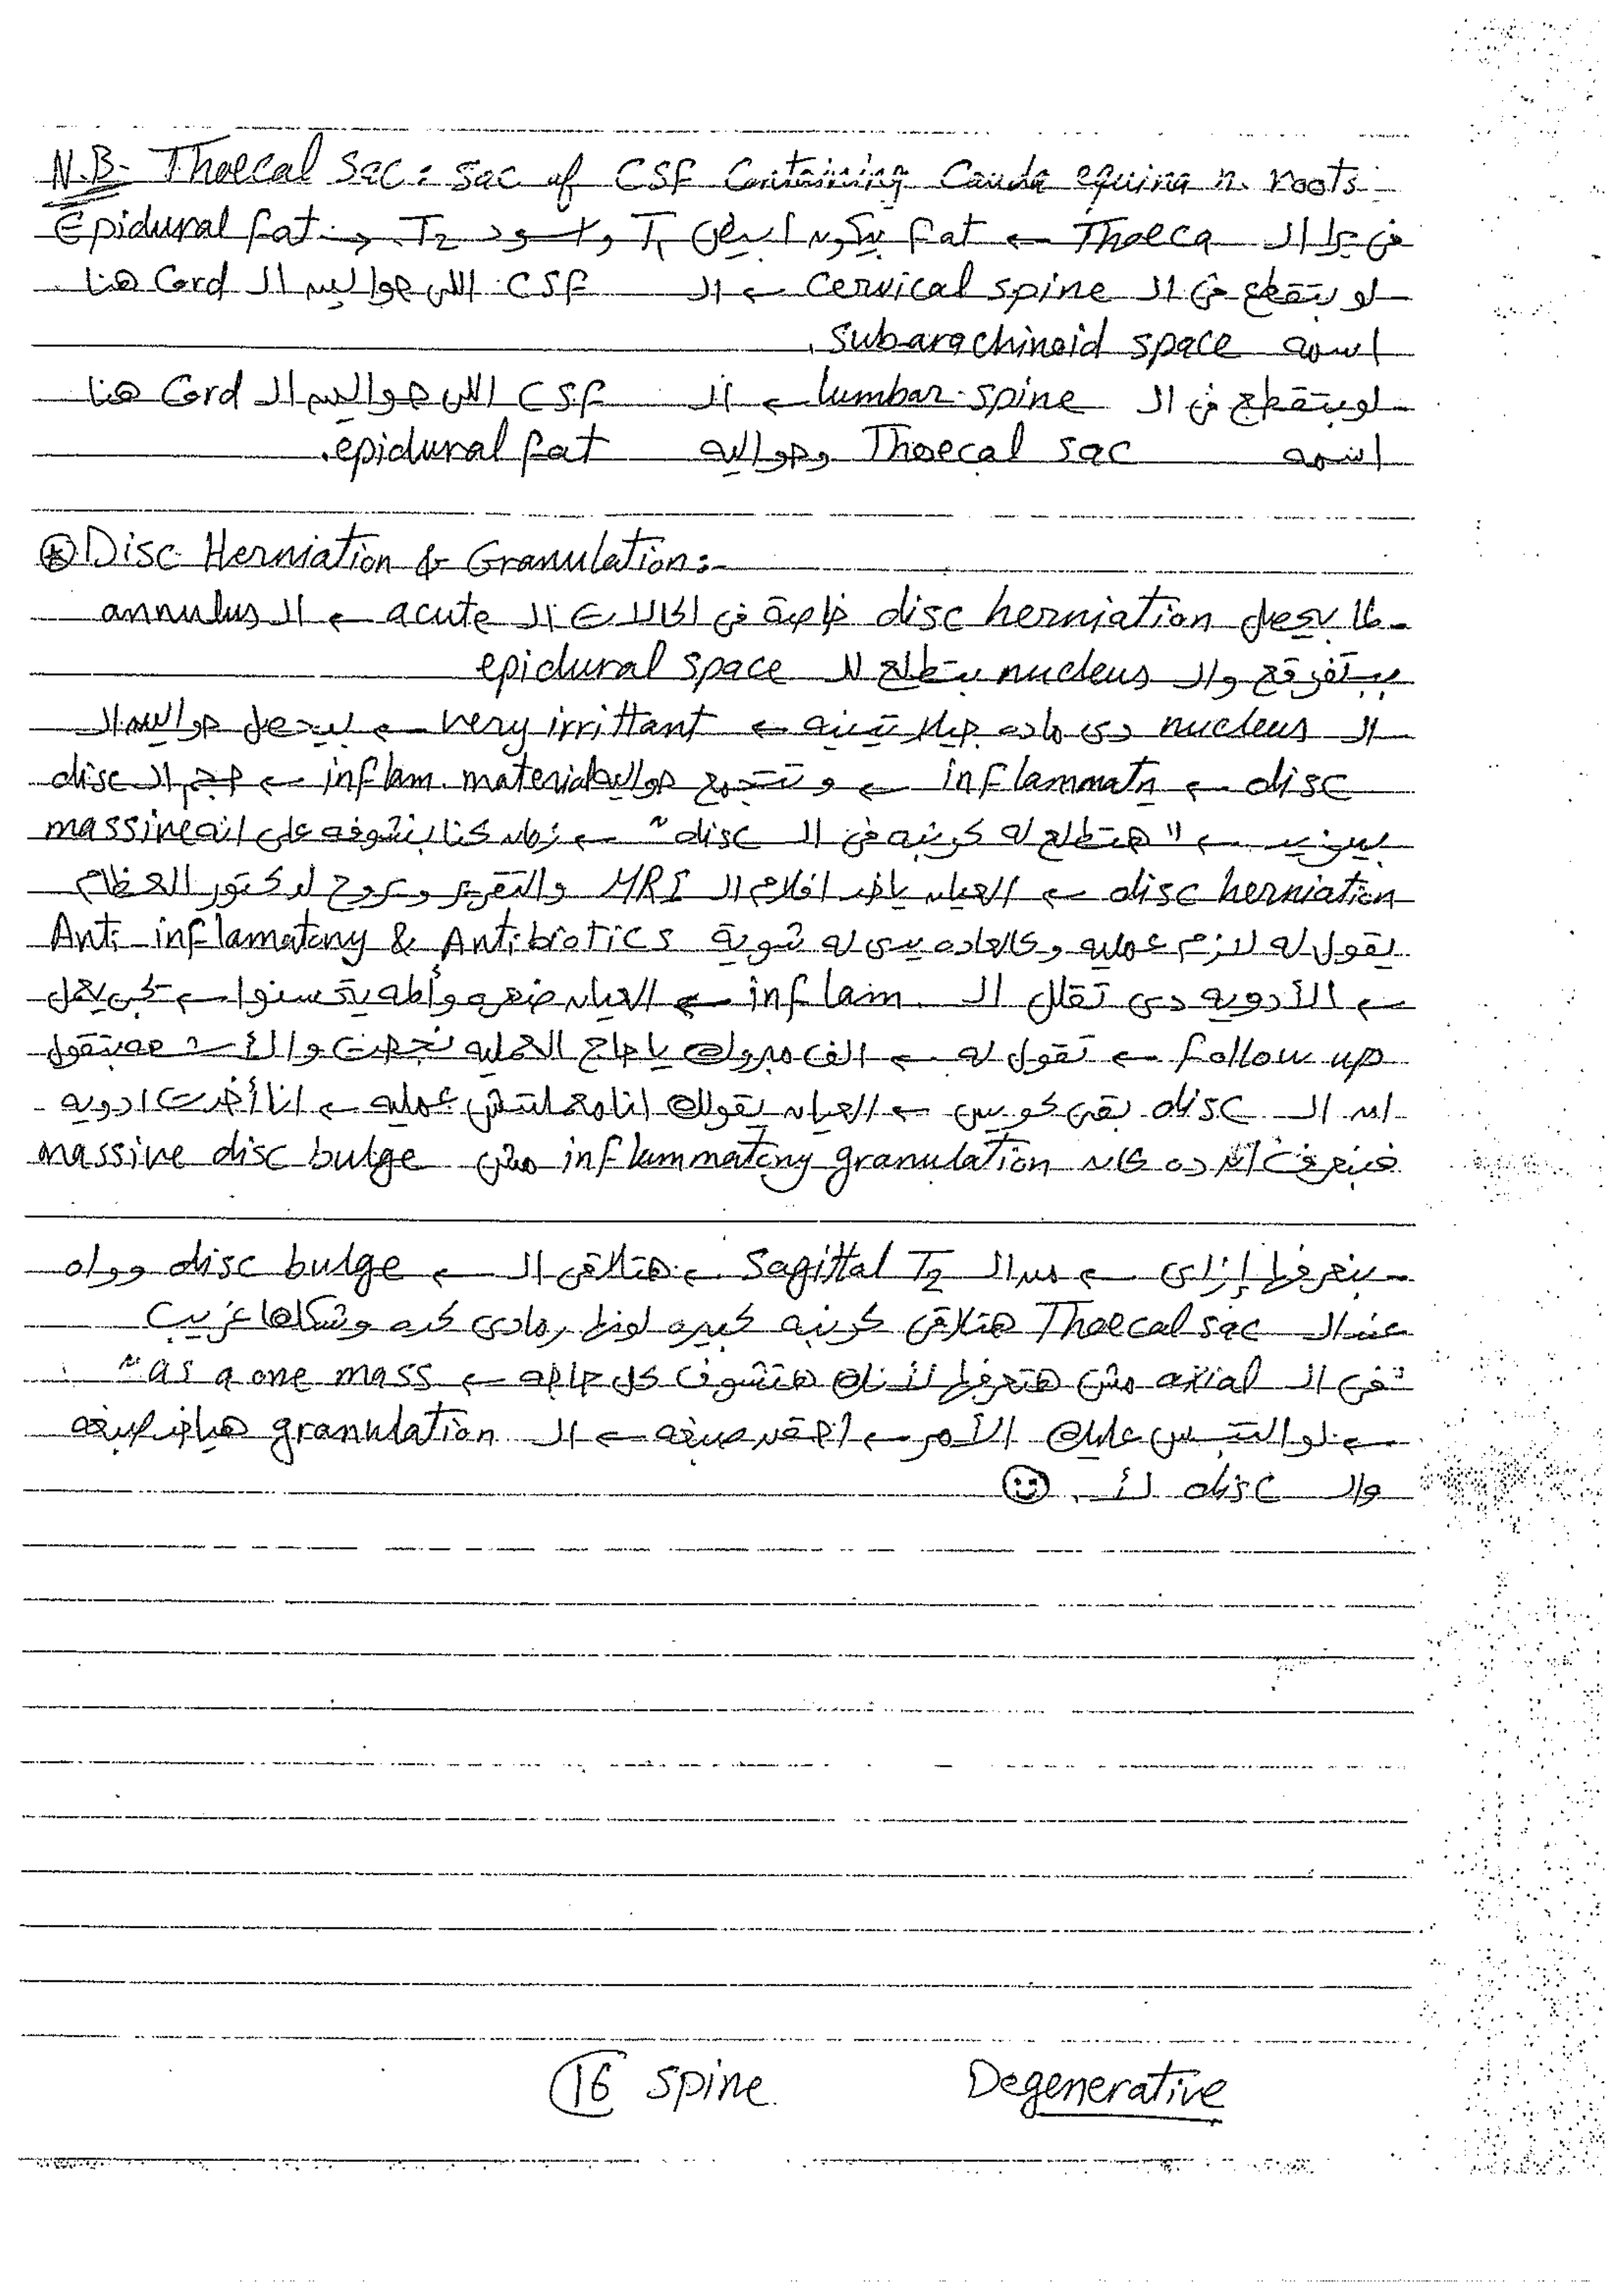 N.B- Thoecal Sac: Sac of CSF Containing Cauda equina n. roots
في برا ال Thoeca ← fat بيكون ابيض T1 و اسود T2 → Epidural fat
لو بتقطع في ال cervical spine ← ال CSF اللي حواليه ال Cord هنا
اسمه subarachinoid space.
لو بتقطع في ال lumbar spine ← ال CSF اللي حواليه ال Cord هنا
اسمه Thoecal sac وحواليه epidural fat.
⊛ Disc Herniation & Granulation:-
- لما بيحصل disc herniation خاصة في الحالات ال acute ← ال annulus
بيتفرقع وال nucleus بيطلع لل epidural space
ال nucleus دي ماده جيلاتينيه ← very irrittant ← بيحصل حواليه ال
disc ← inflammatn ← و تتجمع حواليه inflam. material ← حجم ال disc
بيزيد ← "هتطلع له كرنبه في ال disc" ← زمان كنا بنشوفه على انه massive
disc herniation ← العيان ياخد افلام ال MRI والتقرير ويروح لدكتور العظام
يقول له لازم عمليه وكالعاده يدى له شوية Anti-inflamatory & Antibiotics
← الأدويه دي تقلل ال inflam. ← العيان ضهره وألمه يتحسنوا ← يعمل
follow up ← تقول له ← الف مبروك يا حاج العمليه نجحت والأشعه بتقول
ان ال disc بقى كويس ← العيان يقولك انا معملتش عمليه ← انا أخدت ادويه
فنعرف ان ده كان inflammatory granulation مش massive disc bulge
- بنعرفها إزاى ← من ال Sagittal T2 ← هتلاقى ال ← disc bulge ووراه
عند ال Thoecal sac هتلاقى كرنبه كبيره لونها رمادى كده وشكلها غريب
فى ال axial مش هتعرفها لأنك هتشوف كل حاجه ← "as a one mass"
← لو التبس عليك الأمر ← احقن صبغه ← ال granulation هياخد صبغه
وال disc لأ. ☺
16 Spine Degenerative